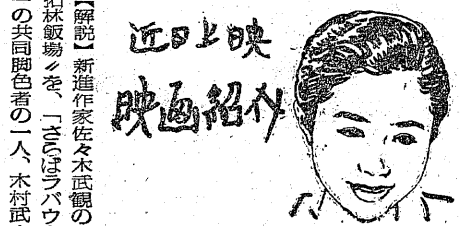 近日上映
映画紹介
【解説】新進作家佐々木武観の
拓林飯場〃を、「さらばラバウ
の共同脚色者の一人、木村武